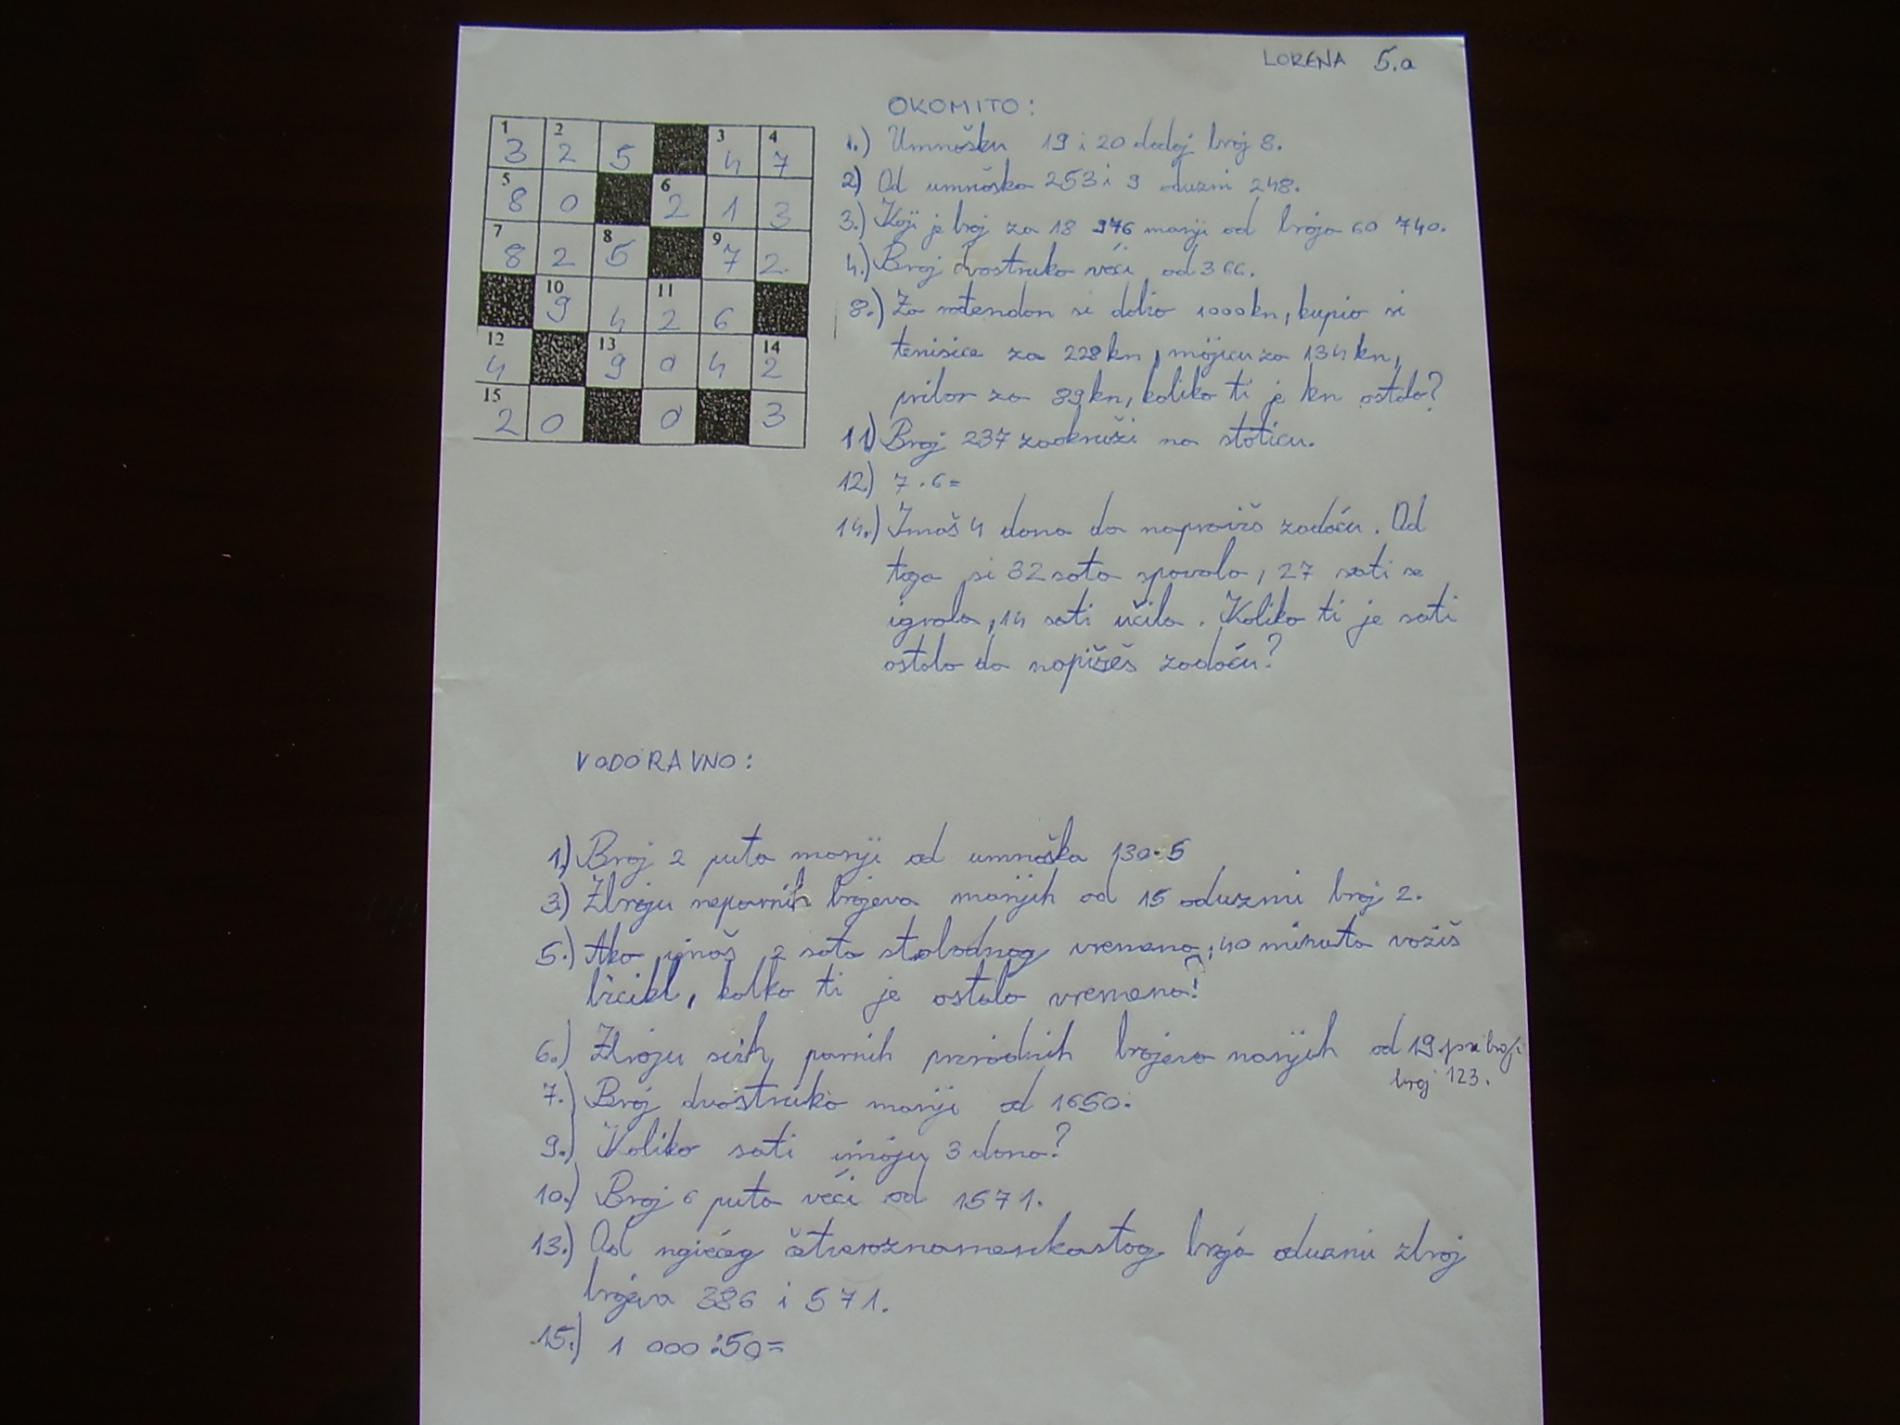 LORENA 5.a
1 3 2 2 5 3 4 4 7
5 8 0 6 2 1 3
7 8 2 8 5 9 7 2
10 9 4 11 2 6
12 4 13 9 0 4 14 2
15 2 0 0 3
OKOMITO:
1.) Umnošku 19 i 20 dodaj broj 8.
2) Od umnoška 253 i 9 oduzmi 248.
3.) Koji je broj za 18 976 manji od broja 60 740.
4.) Broj dvostruko veći od 366.
8.) Za rođendan si dobio 1000 kn, kupio si
tenisice za 228 kn, majicu za 134 kn,
pribor za 89 kn, koliko ti je kn ostalo?
11) Broj 237 zaokruži na stoticu.
12.) 7 · 6 =
14.) Imaš 4 dana da napraviš zadaću. Od
toga si 32 sata spavala, 27 sati se
igrala, 14 sati učila. Koliko ti je sati
ostalo da napišeš zadaću?
VODORAVNO:
1.) Broj 2 puta manji od umnoška 130·5
3.) Zbroju neparnih brojeva manjih od 15 oduzmi broj 2.
5.) Ako imaš 2 sata slobodnog vremena, 40 minuta voziš
bicikl, kolko ti je ostalo vremena?
6.) Zbroju svih parnih prirodnih brojeva manjih od 19 pribroji
broj 123.
7.) Broj dvostruko manji od 1650.
9.) Koliko sati imaju 3 dana?
10.) Broj 6 puta veći od 1571.
13.) Od najvećeg četveroznamenkastog broja oduzmi zbroj
brojeva 386 i 571.
15.) 1 000 : 50 =